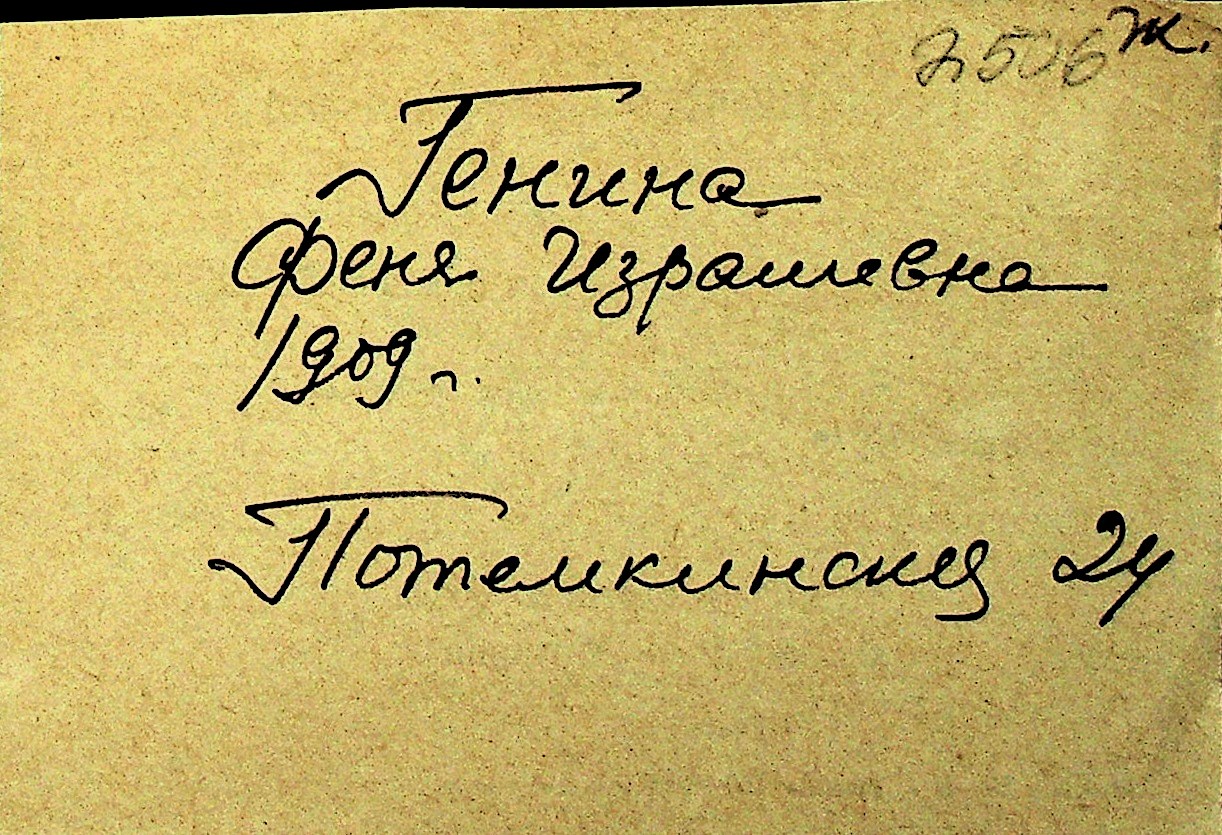 7506 ж.
Генина
Феня Израилевна
1909 г.
Потемкинская 24